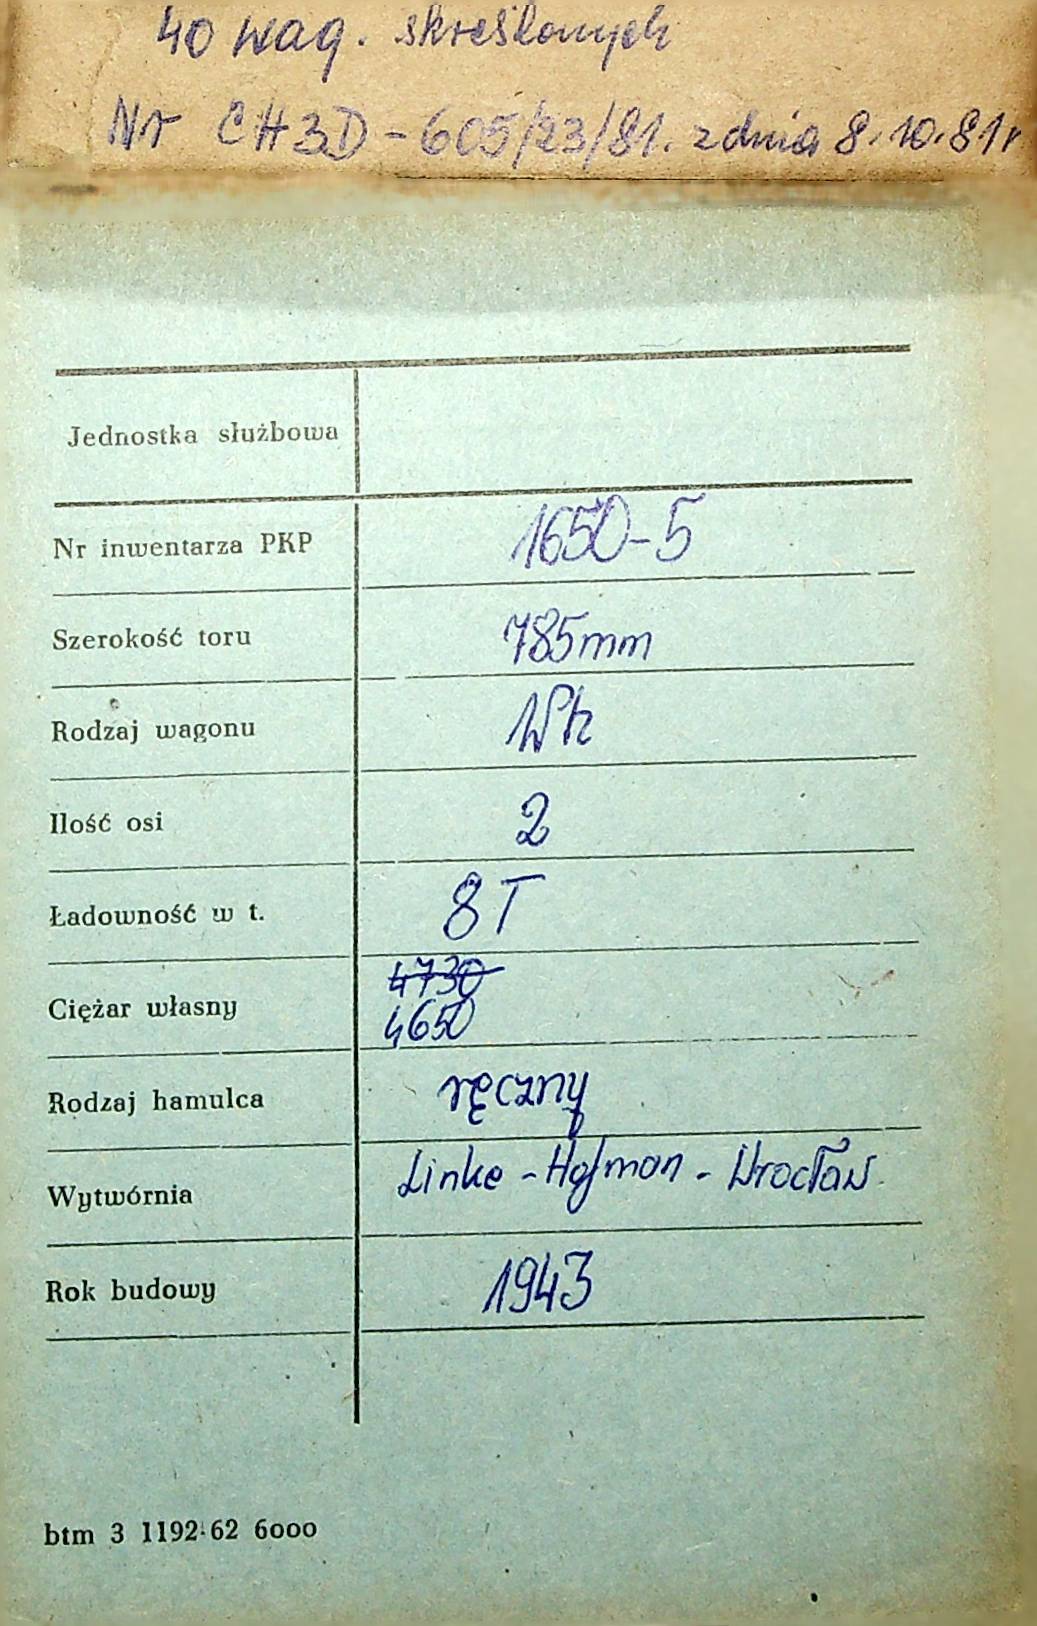 40 wag. skreślonych
Nr CH3D-605/23/81. z dnia 8.10.81r
Jednostka służbowa
Nr inwentarza PKP 1650-5
Szerokość toru 785mm
Rodzaj wagonu Wk
Ilość osi 2
Ładowność w t. 8T
4730
Ciężar własny 4650
Rodzaj hamulca ręczny
Wytwórnia Linke-Hofman-Wrocław
Rok budowy 1943
btm 3 1192-62 6000